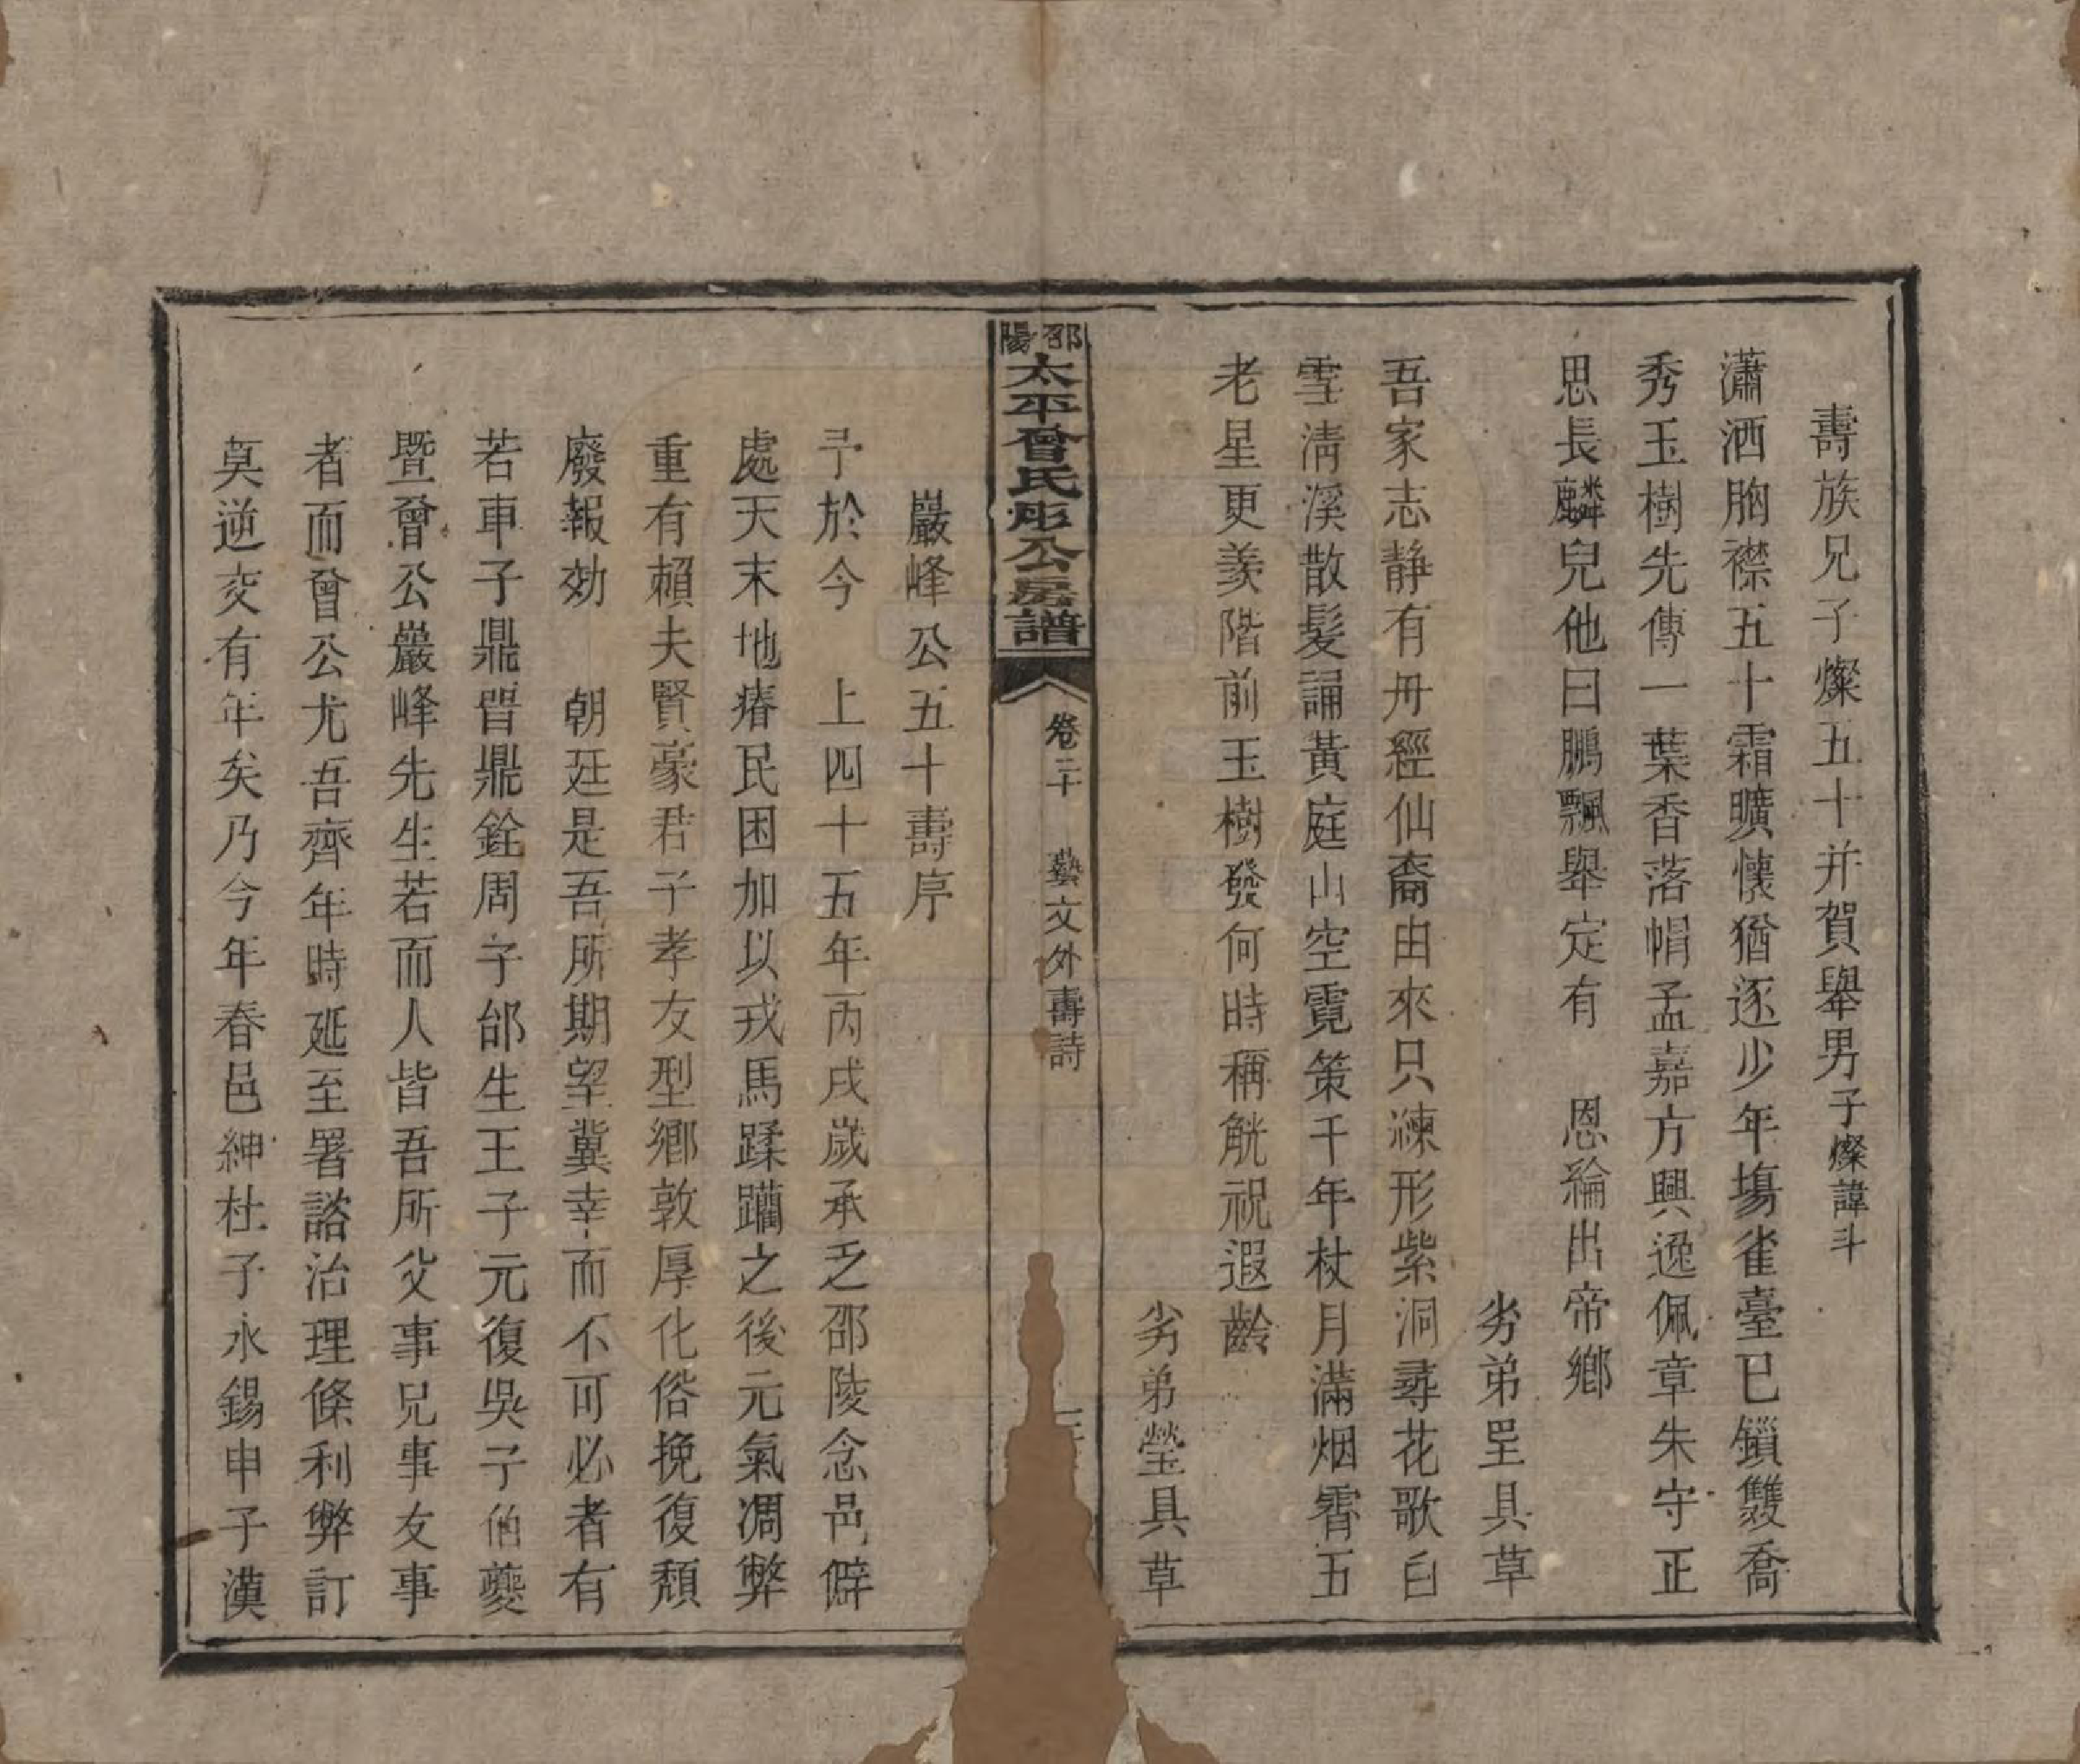 壽族兄子燦五十并賀舉男子燦諱斗
瀟洒胸襟五十霜曠懷猶逐少年塲雀臺已鎖雙喬
秀玉樹先傳一葉香落帽孟嘉方興逸佩章朱守正
思長麟兒他日鵬飄舉定有　恩綸出帝鄉
劣弟呈具草
吾家志靜有丹經仙裔由來只湅形紫洞尋花歌白
雪清溪散髮誦黃庭山空霓策千年杖月滿烟霄五
老星更羨階前玉樹發何時稱觥祝遐齡
劣弟瑩具草
邵陽太平曾氏彤公房譜　卷二十　藝文外壽詩
巖峰公五十壽序
予於今　上四十五年丙戌歲承乏邵陵念邑僻
處天末地瘠民困加以戎馬蹂躪之後元氣凋弊
重有賴夫賢豪君子孝友型鄉敦厚化俗挽復頹
廢報効　朝廷是吾所期望冀幸而不可必者有
若車子鼎晉鼎銓周子郃生王子元復吳子伯夔
暨曾公巖峰先生若而人皆吾所父事兄事友事
者而曾公尤吾齊年時延至署諮治理條利弊訂
莫逆交有年矣乃今年春邑紳杜子永錫申子漢